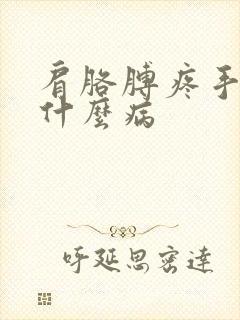 肩胳膊疼手
什麼病
呼延思密達